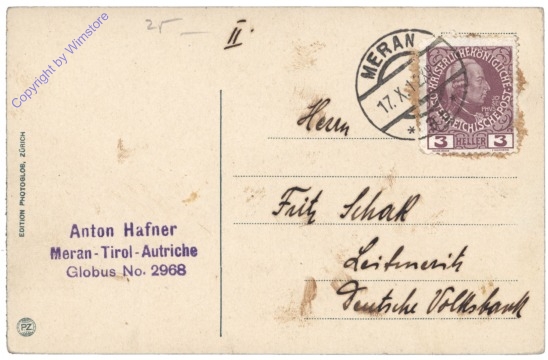 Copyright by Wimstore
25 —
II
MERAN
17. X. 1
KAISERLICHE KÖNIGLICHE
ÖSTERREICHISCHE POST
3 HELLER 3
Herrn
Fritz Schak
Leitmeritz
Deutsche Volksbank
EDITION PHOTOGLOB, ZÜRICH
Anton Hafner
Meran-Tirol-Autriche
Globus No. 2968
PZ